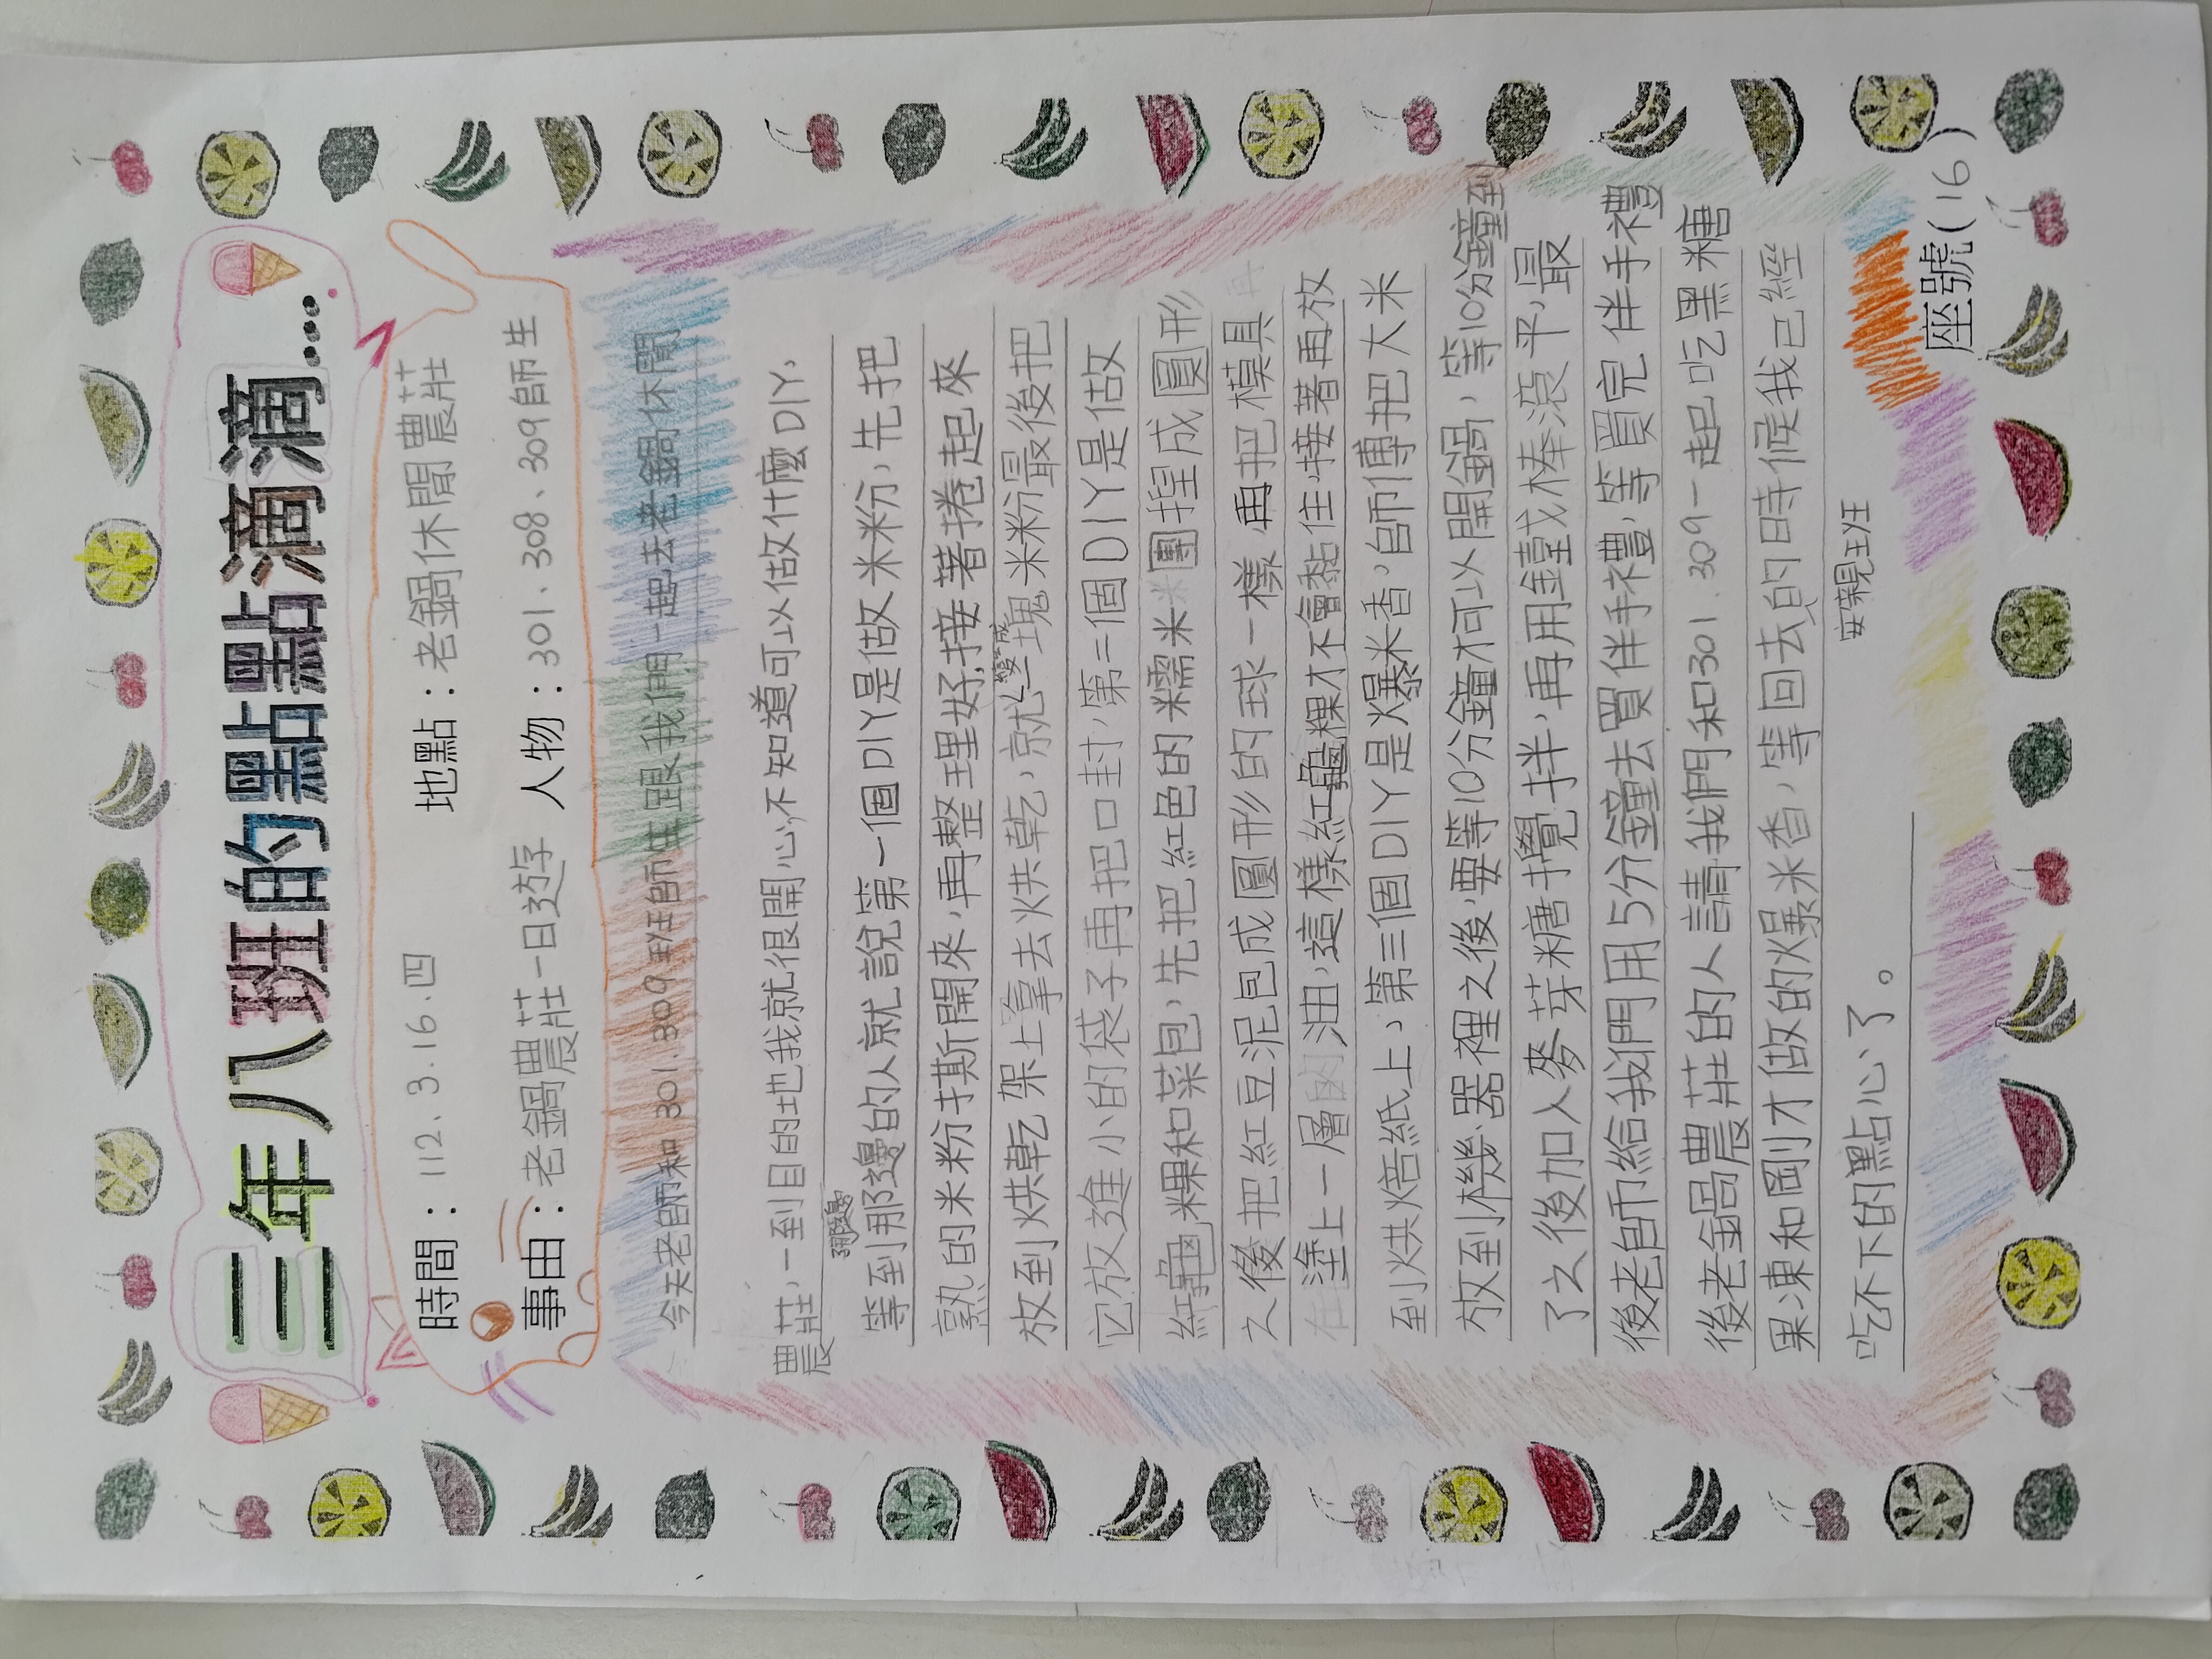 三年八班的點點滴滴...
時間：112.3.16.四 地點：老鍋休閒農莊
事由：老鍋農莊一日遊 人物：301、308、309師生
今天老師和301.309班師生跟我們一起去老鍋休閒
農莊，一到目的地我就很開心，不知道可以做什麼DIY，
等到那邊的人就說第一個DIY是做米粉，先把
熟的米粉撕開來，再整理好，接著捲起來
放到烘乾架上拿去烘乾，就變成塊米粉最後把
它放進小的袋子再把口封，第二個DIY是做
紅龜粿和菜包，先把紅色的糯米團捏成圓形
之後把紅豆泥包成圓形的球一樣，再把模具
塗上一層油，這樣紅龜粿才不會黏住，接著再放
到烘焙紙上，第三個DIY是爆米香，師傅把大米
放到機器裡之後，要等10分鐘才可以開鍋，等10分鐘到
了之後加入麥芽糖攪拌，再用鐘或棒滾平，最
後老師給我們用5分鐘去買伴手禮，等買完伴手禮
後老鍋農莊的人請我們和301.309一起吃黑糖
果凍和剛才做的爆米香，等回去的時候我已經
吃不下的點心了。
安親班
座號(16)